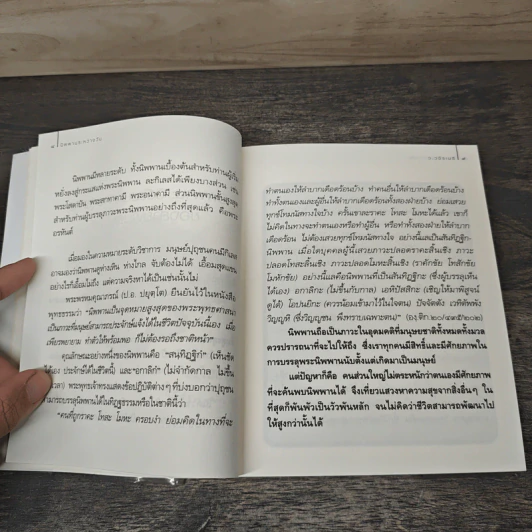 นิพพานมีหลายระดับ ทั้งนิพพานเบื้องต้นสำหรับท่านผู้เป็น
หยั่งลงสู่กระแสแห่งพระนิพพาน ละกิเลสได้เพียงบางส่วน เช่น
พระโสดาบัน พระสกทาคามี พระอนาคามี ส่วนนิพพานขั้นสูงสุด
สำหรับท่านผู้บรรลุภาวะพระนิพพานอย่างถึงที่สุดแล้ว คือพระ
อรหันต์
เมื่อมองในความหมายระดับวิชาการ มนุษย์ปุถุชนคนมีกิเลส
อาจมองว่านิพพานดูห่างเหิน ห่างไกล จับต้องไม่ได้ เอื้อมสุดแขน
อย่างไรก็เอื้อมไม่ถึง แต่ความจริงหาได้เป็นเช่นนั้นไม่
พระพรหมคุณาภรณ์ (ป.อ. ปยุตฺโต) ยืนยันไว้ในหนังสือ
พุทธธรรมว่า "นิพพานเป็นจุดหมายสูงสุดของพระพุทธศาสนา
เป็นภาวะที่มนุษย์สามารถประจักษ์แจ้งได้ในชีวิตปัจจุบันนี้เอง เมื่อ
เพียรพยายาม ทำตัวให้พร้อมพอ ก็ไม่ต้องรอถึงชาติหน้า"
คุณลักษณะอย่างหนึ่งของนิพพานคือ "สนฺทิฏฺฐิกํ" (เห็นชัด
ได้เอง ประจักษ์ได้ในชีวิตนี้) และ "อกาลิกํ" (ไม่จำกัดกาล ไม่ขึ้น
เวลา) พระพุทธเจ้าทรงแสดงข้อปฏิบัติต่างๆ ที่บ่งบอกว่าปุถุชน
สามารถบรรลุนิพพานได้ในทิฏฐธรรมหรือในชาตินี้ว่า
"คนที่ถูกราคะ โทสะ โมหะ ครอบงำ ย่อมคิดในทางที่จะ
ทำตนเองให้ลำบากเดือดร้อนบ้าง ทำคนอื่นให้ลำบากเดือดร้อนบ้าง
ทำทั้งตนเองและผู้อื่นให้ลำบากเดือดร้อนทั้งสองฝ่ายบ้าง ย่อมเสวย
ทุกข์โทมนัสทางใจบ้าง ครั้นเขาละราคะ โทสะ โมหะได้แล้ว เขาก็
ไม่คิดในทางจะทำตนเองหรือทำผู้อื่น หรือทำทั้งสองฝ่ายให้ลำบาก
เดือดร้อน ไม่ต้องเสวยทุกข์โทมนัสทางใจ อย่างนี้แลเป็นสันทิฏฐิก-
นิพพาน เมื่อใดบุคคลผู้นี้เสวยภาวะปลอดราคะสิ้นเชิง ภาวะ
ปลอดโทสะสิ้นเชิง ภาวะปลอดโมหะสิ้นเชิง (ราคักขัย โทสักขัย
โมหักขัย) อย่างนี้แลคือนิพพานที่เป็นสันทิฏฐิกะ (ซึ่งผู้บรรลุเห็น
ได้เอง) อกาลิกะ (ไม่ขึ้นกับกาล) เอหิปัสสิกะ (เชิญให้มาพิสูจน์
ดูได้) โอปนยิกะ (ควรน้อมเข้ามาไว้ในใจตน) ปัจจัตตัง เวทิตัพพัง
วิญญูหิ (ซึ่งวิญญูชน พึงทราบเฉพาะตน)" (อง.ติก.๒๐/๔๙๕/๒๐๒)
นิพพานถือเป็นภาวะในอุดมคติที่มนุษยชาติทั้งหมดทั้งมวล
ควรปรารถนาที่จะไปให้ถึง ซึ่งเราทุกคนมีสิทธิ์และมีศักยภาพใน
การบรรลุพระนิพพานนับตั้งแต่เกิดมาเป็นมนุษย์
แต่ปัญหาก็คือ คนส่วนใหญ่ไม่ตระหนักว่าตนเองมีศักยภาพ
ที่จะค้นพบนิพพานได้ จึงเที่ยวแสวงหาความสุขจากสิ่งอื่นๆ ใน
ที่สุดก็พันพัวเป็นวัวพันหลัก จนไม่คิดว่าชีวิตสามารถพัฒนาไป
ให้สูงกว่านั้นได้